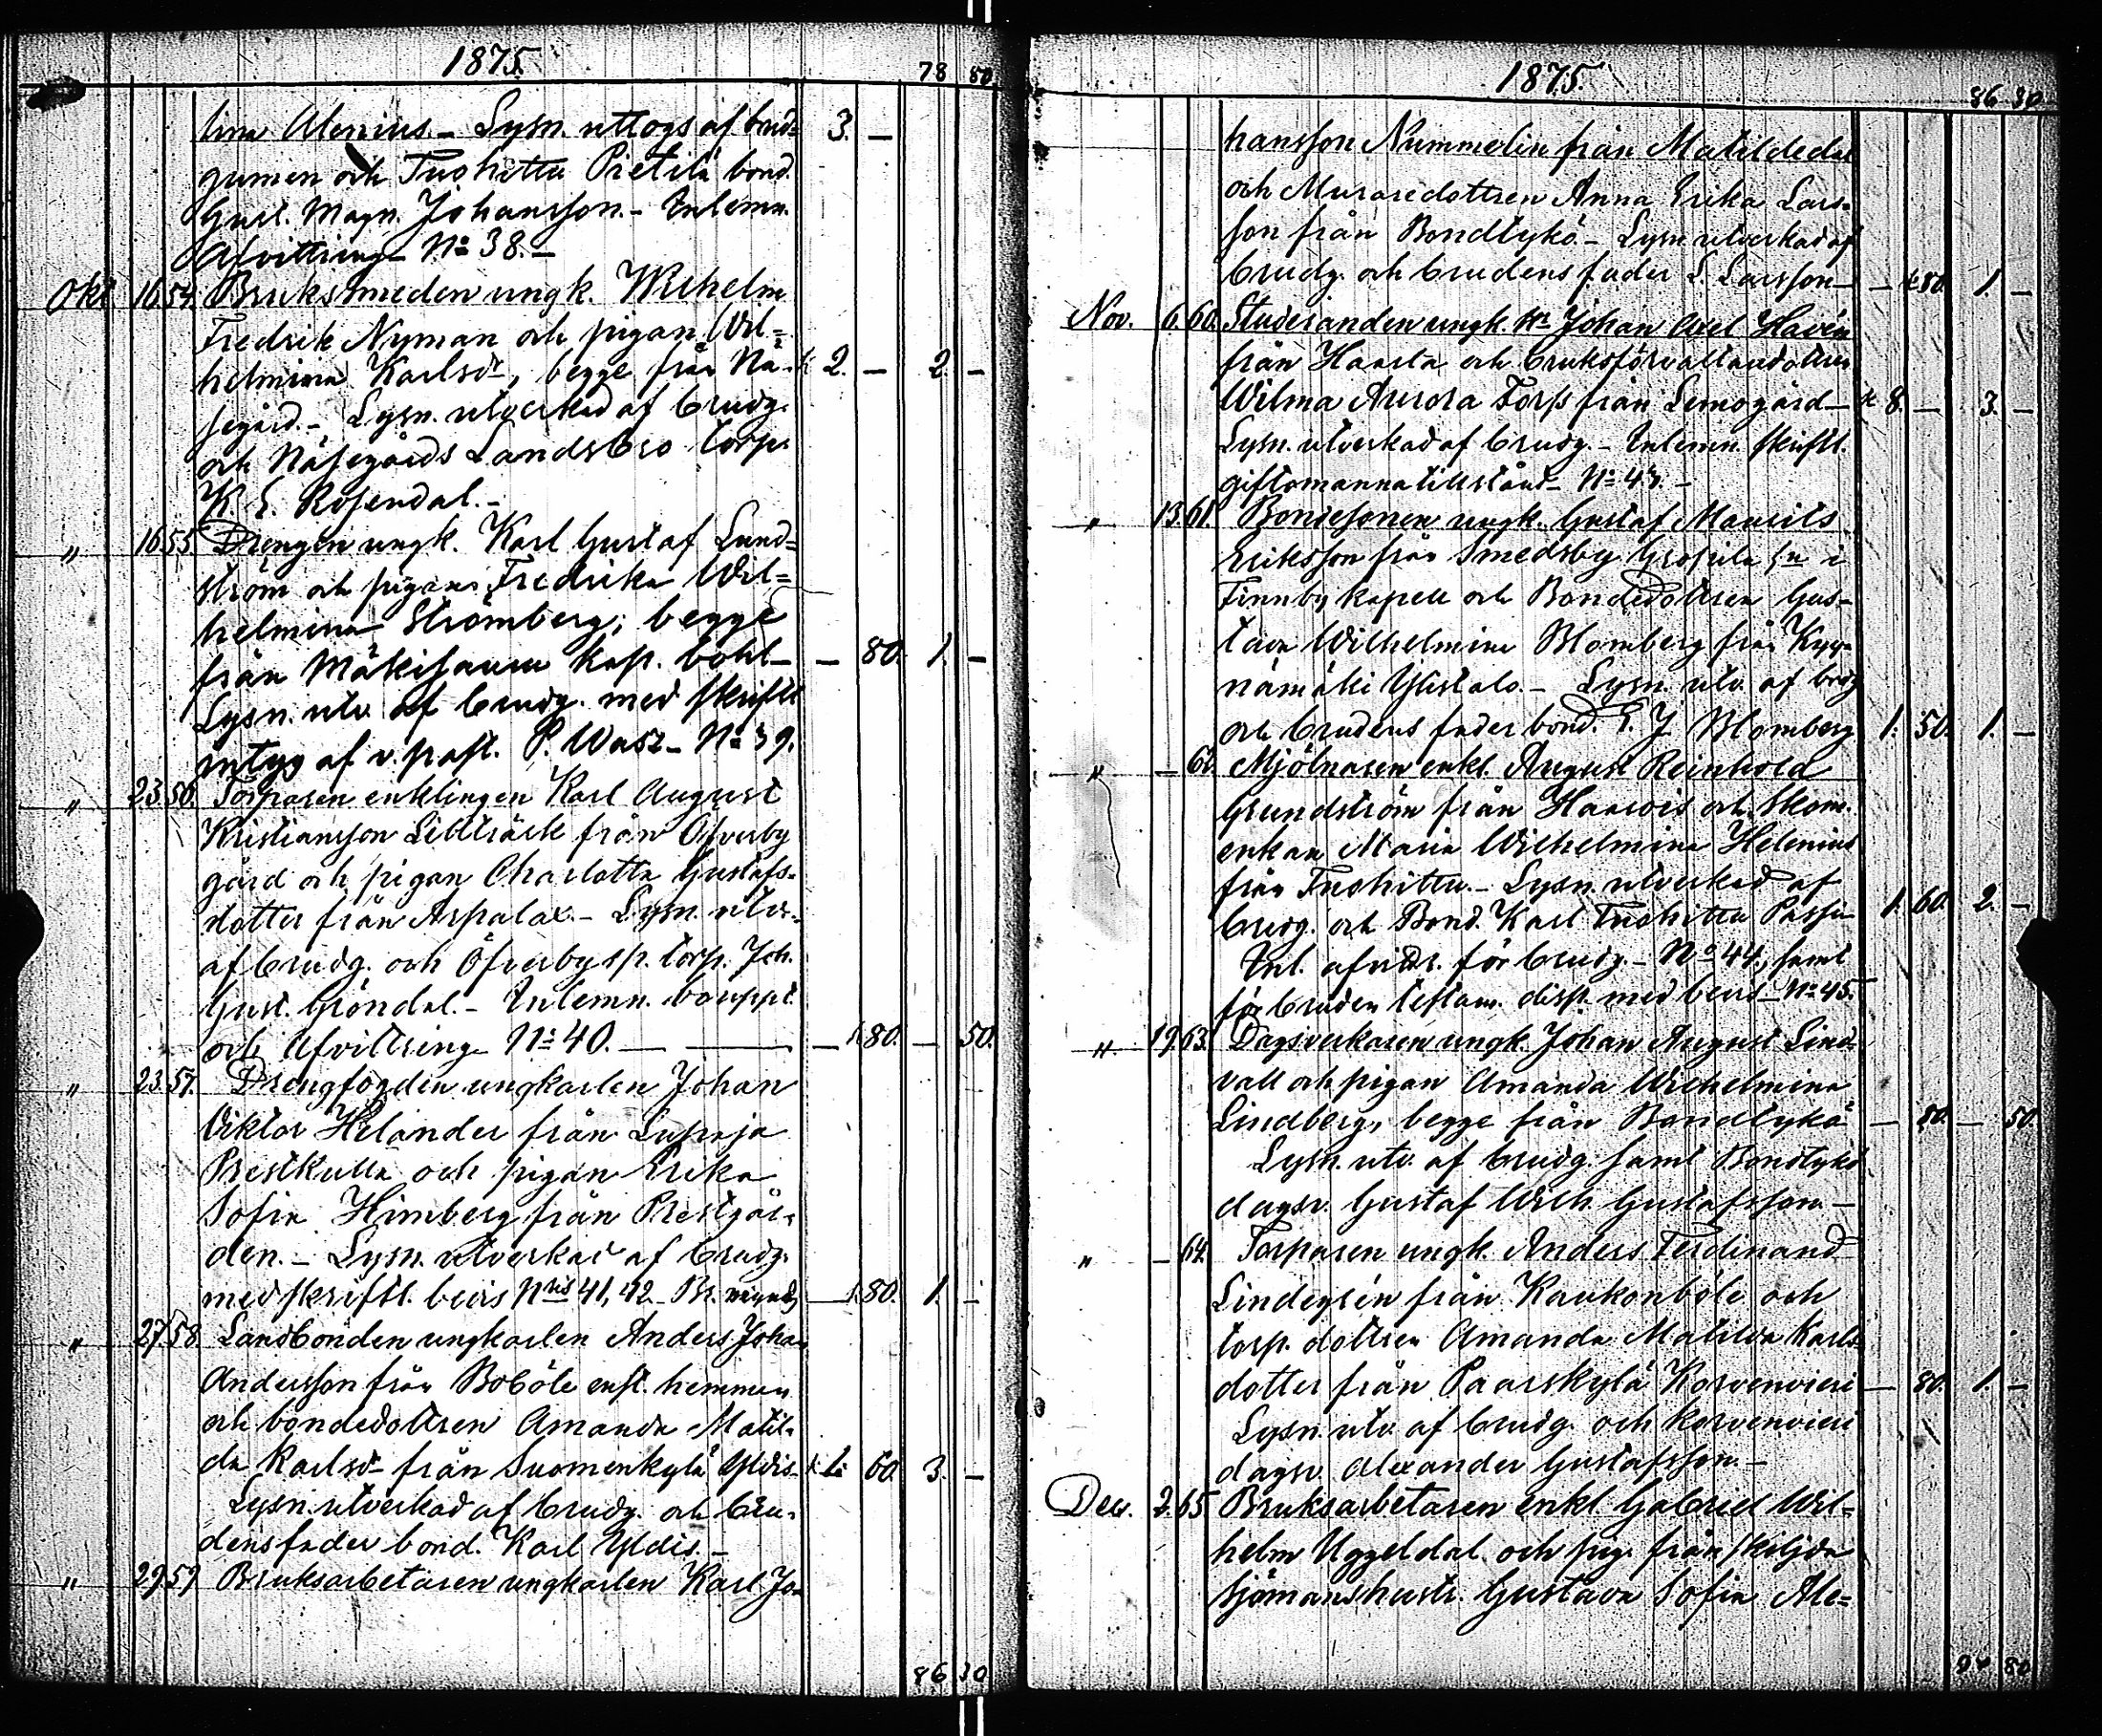 1875.
78 80
lina Alenius – Lysn. uttogs af brud= 3. –
gumen och Tuohittu Pietilä bond.
Gust. Magn. Johansson. – Inlemn.
Afvittring Nº 38. –
Okt. 16 54. Bruksmeden ungk. Wilhelm
Fredrik Nyman och pigan Wil=
helmina Karlsdr, begge från Nä- 2. – 2. –
segård. – Lysn. utverkad af brudg.
och Näsegårds Landsbro torp.
K. E. Rosendal. –
" 16 55 Drengen ungk. Karl Gustaf Lund=
ström och pigan Fredrika Wil=
helmina Strömberg, begge
från Mäkisauru kap. bohl – – 80. 1. –
Lysn. utv. af brudg. med skriftl
intyg af v. past. P. Wasz – Nº 39.
" 23. 56. Torparen enklingen Karl August
Kristiansson Lillträsk från Öfverby
gård och pigan Charlotta Gustafs-
dotter från Arpalax. – Lysn. utv.
af brudg. och Öfverby sp. torp. Joh.
Gust. Gröndal. – Inlemn. bouppt.
och Afvittring Nº 40. – – 80. – 50.
" 23. 57. Drengfogden ungkarlen Johan
Viktor Helander från Lupaja
Prestkulla och pigan Erika
Sofia Himberg från Prestgår-
den. – Lysn. utverkad af brudg.
med skriftl. bevis Nris 41, 42 – – 80. 1. –
" 27. 58 Landbonden ungkarlen Anders Johan
Andersson från Boböle enst. hemman
och bondedottren Amanda Matil-
da Karlsdr från Suomenkylä Yldis – 60. 3. –
Lysn. utverkad af brudg. och bru-
dens fader bond. Karl Yldis. –
" 29 59 Bruksarbetaren ungkarlen Karl Jo
86 30
1875.
86 30
hansson Nummelin från Matildedal
och Muraredottren Anna Erika Lars-
son från Bondtykö. – Lysn. utverkad af
brudg. och brudens fader L. Larsson – – 80. 1. –
Nov. 6. 60. Studeranden ungk. Hr Johan Axel Havén
från Haarla och bruksförvaltaredottren
Wilma Aurora Forss från Lemogård – 8. – 3. –
Lysn. utverkad af brudg. – Inlemn. skriftl.
giftomannatillstånd – Nº 43. –
" 13. 61. Bondesonen ungk. Gustaf Maurits
Eriksson från Smedsby Gropila sn i
Finnby kapell och Bondedottren Gus-
tava Wilhelmina Blomberg från Kyy-
nämäki Ylistalo. – Lysn. utv. af brdg
och brudens fader bond. E. J. Blomberg 1. 50. 1. –
" – 62. Mjölnaren enkl. August Reinhold
Grundström från Haarois och Skom.
enkan Maria Wilhelmina Helenius
från Tuohittu. – Lysn. utverkad af
brudg. och Bond. Karl Tuohittu Passi 1. 60. 2. –
Inl. afvittr. för brudg. – Nº 44, samt
för bruden testam. disp. med bevis – Nº 45.
" 19 63. Dagsverkaren ungk. Johan August Lind-
vall och pigan Amanda Wilhelmina
Lindberg, begge från Bondtykö – 80. – 50.
Lysn. utv. af brudg. samt Bondtykö
dagsv. Gustaf Wilh. Gustafsson. –
" – 64. Torparen ungk. Anders Ferdinand
Lindegrén från Kaukonböle och
torp. dottren Amanda Matilda Karls-
dotter från Paarskylä Korvenvieri – 80. 1. –
Lysn. utv. af brudg. och Korvenvieri
dagsv. Alexander Gustafsson. –
Dec. 2. 65 Bruksarbetaren enkl. Gabriel Wil=
helm Uggeldal och pig. från skiljda
sjömanshustr. Gustava Sofia Ale=
80